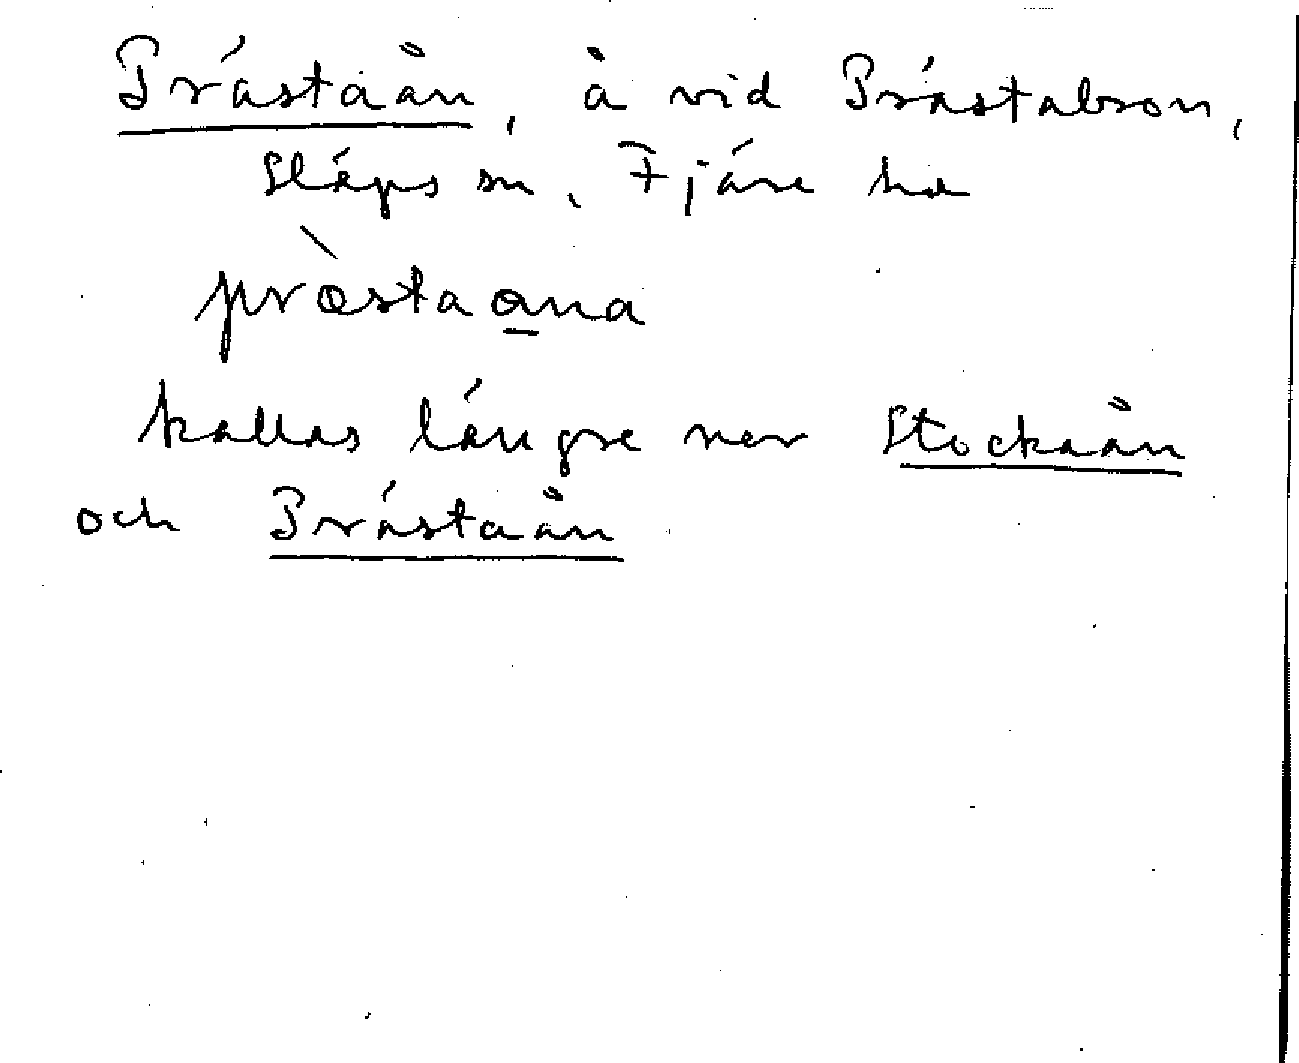 Prästaån, å vid Prästabron,
Släps sn, Fjäre hd
pròstaana
kallas längre ner Stockaån
och Prästaån